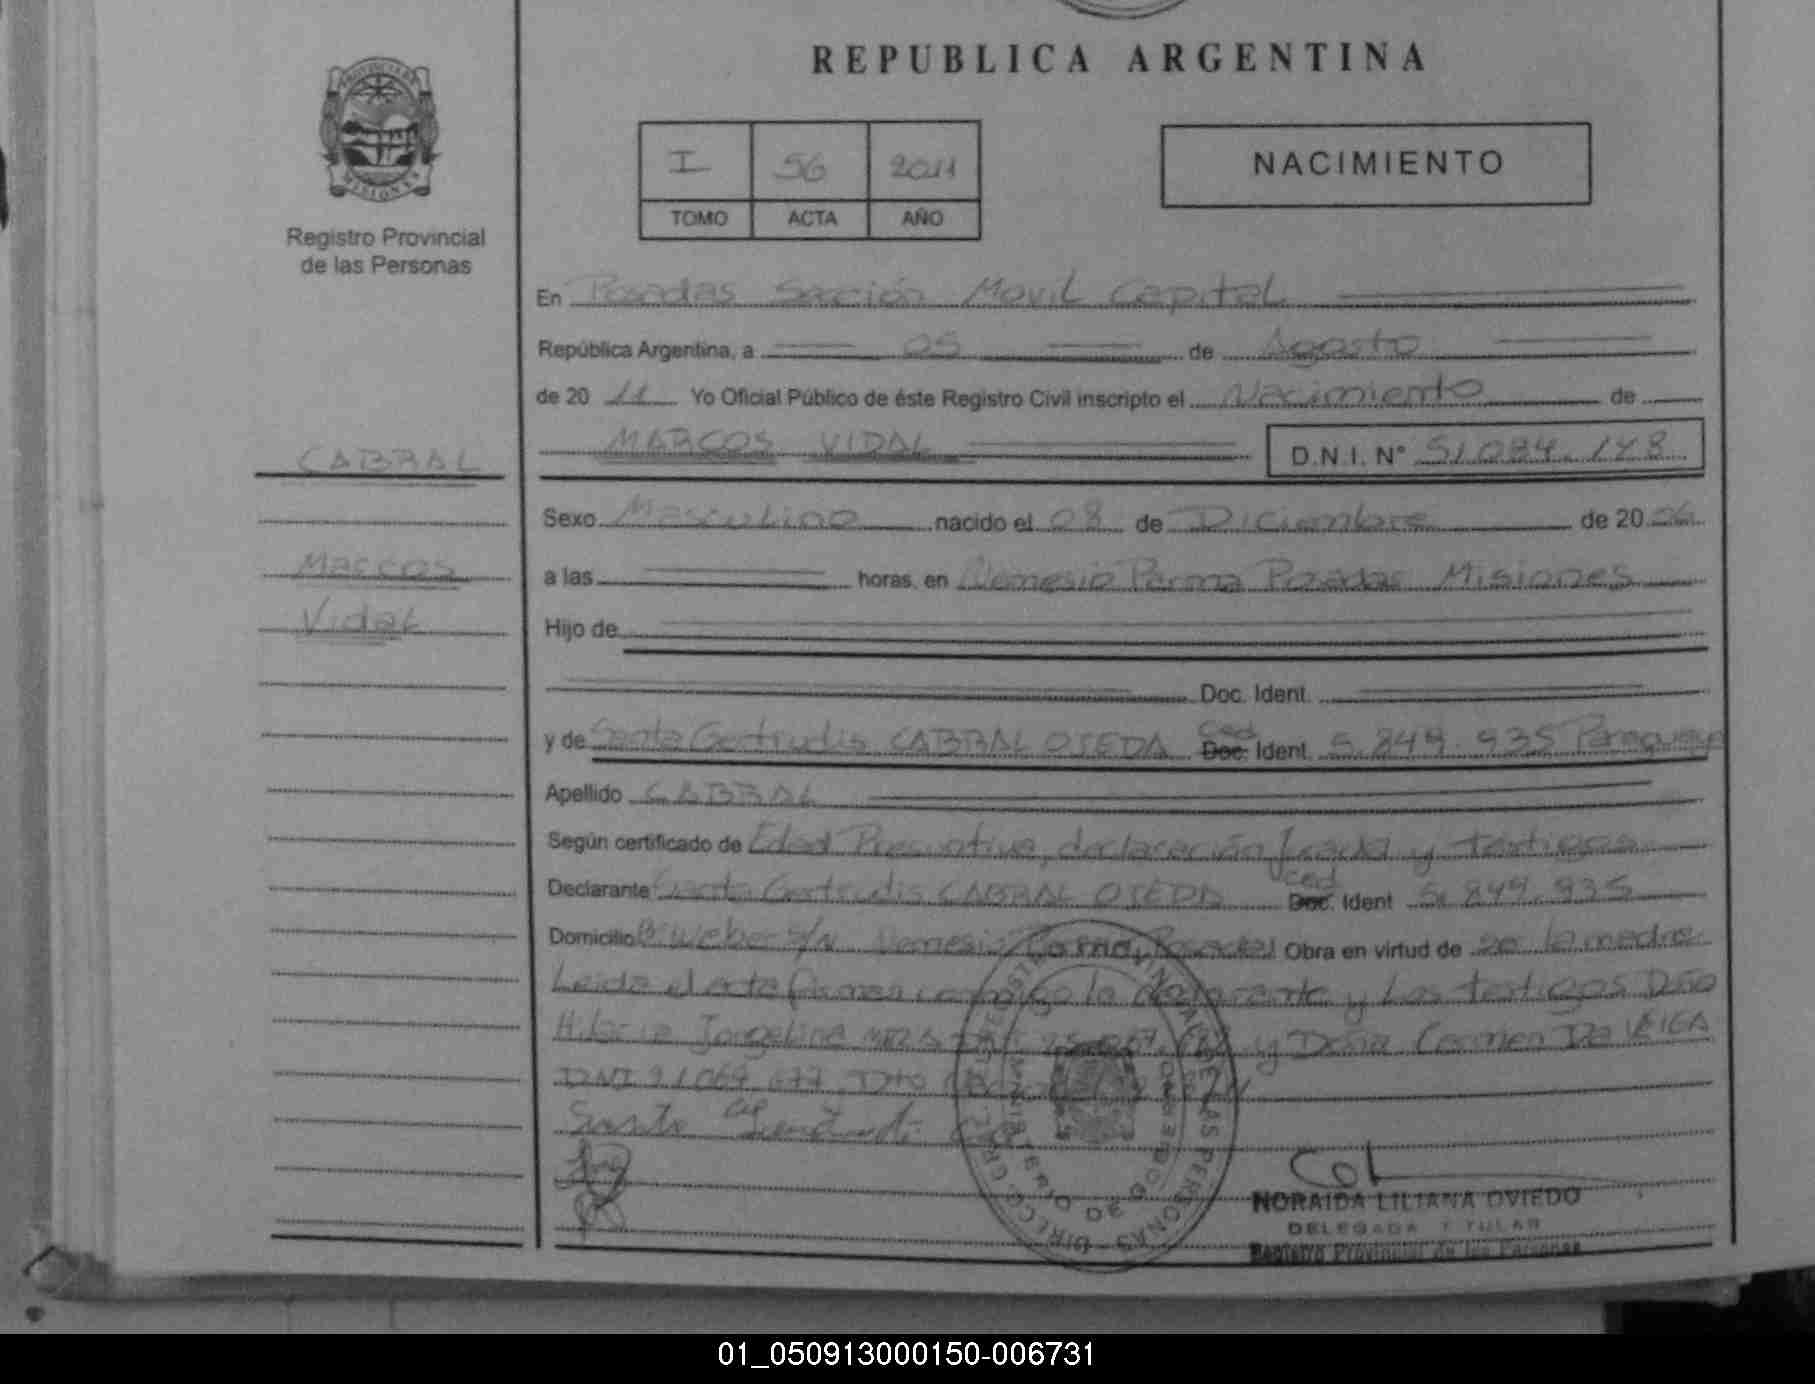 REPUBLICA ARGENTINA
PROVINCIA DE
MISIONES
Registro Provincial
de las Personas
I 56 2011
TOMO ACTA AÑO
NACIMIENTO
En Posadas Sección Movil Capital
República Argentina, a 05 de Agosto
de 20 11 Yo Oficial Público de éste Registro Civil inscripto el Nacimiento de
MARCOS VIDAL D.N.I. N° 51.084.148
CABRAL
Sexo Masculino nacido el 08 de Diciembre de 20 06
Marcos
a las horas, en Nemesio Parma Posadas Misiones
Vidal
Hijo de
Doc. Ident.
y de Santa Gertrudis CABRAL OJEDA Ced Doc. Ident. 5.849.935 Paraguaya
Apellido CABRAL
Según certificado de Edad Presuntiva, declaración Jurada y testigos
Declarante Santa Gertrudis CABRAL OJEDA Ced Doc. Ident 5.849.935
Domicilio Bº Weber S/N Nemesio Parma, Posadas Obra en virtud de ser la madre
Leida el acta firman conmigo la declarante y Los testigos Dña
Hilaria Jorgelina DNI y Doña Carmen Da VEIGA
DNI
Santa
NORAIDA LILIANA OVIEDO
DELEGADA TITULAR
Registro Provincial de las Personas
01_050913000150-006731